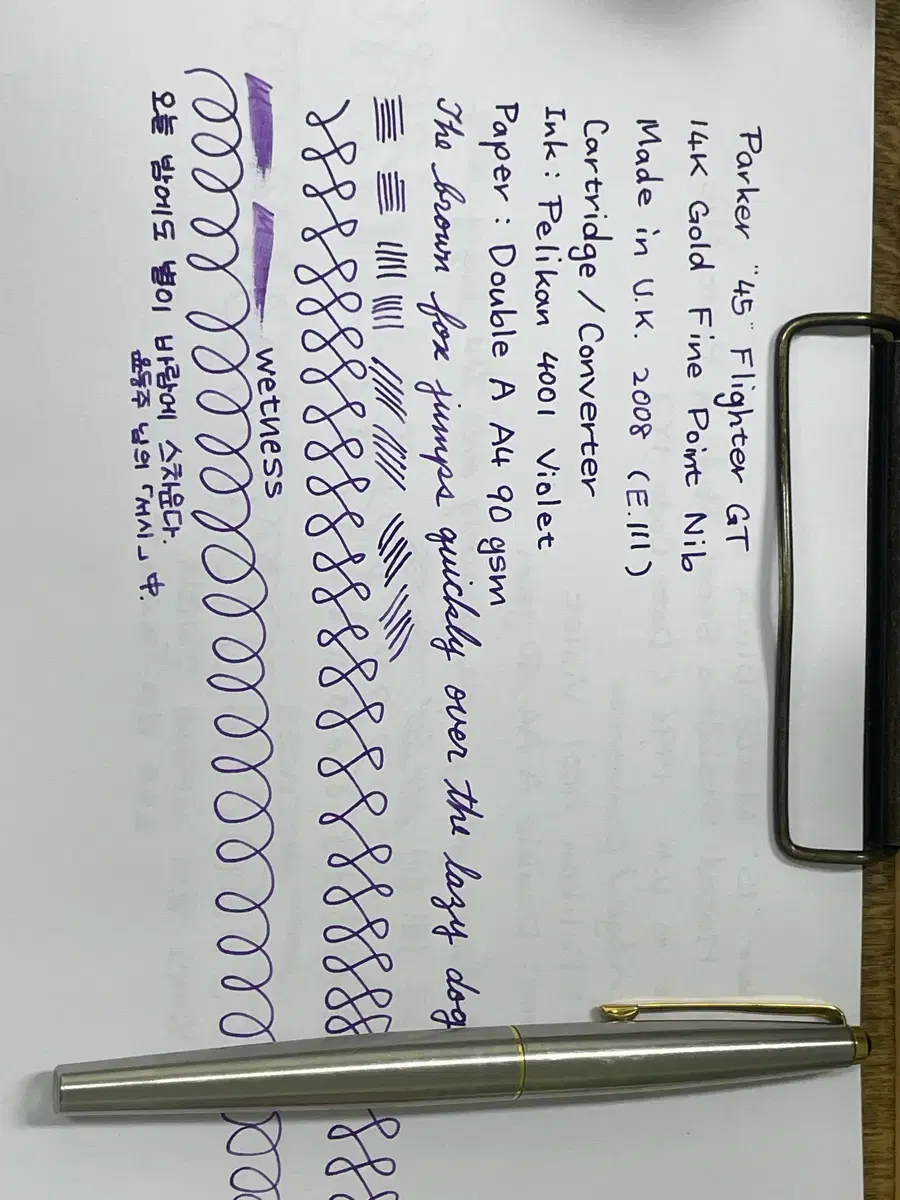 Parker "45" Flighter GT
14K Gold Fine Point Nib
Made in U.K. 2008 (E.III)
Cartridge/Converter
Ink: Pelikan 4001 Violet
Paper: Double A A4 90 gsm
The brown fox jumps quickly over the lazy dog
wetness
오늘 밤에도 별이 바람에 스치운다.
윤동주 님의 「서시」 中.